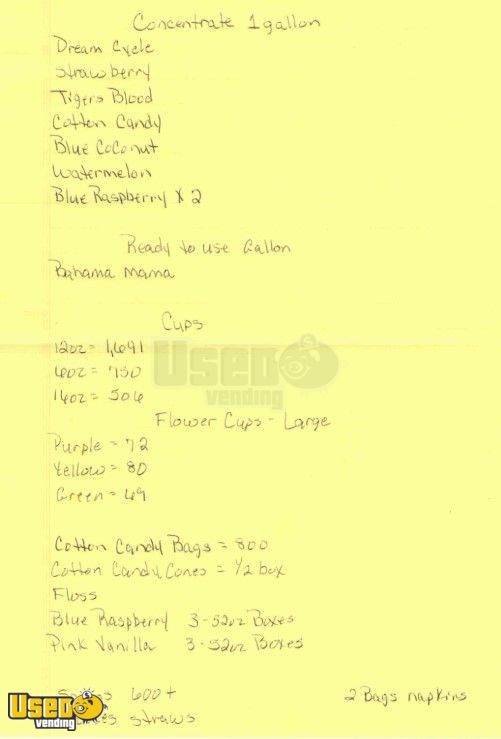 Concentrate 1 gallon
Dream Cycle
Strawberry
Tigers Blood
Cotton Candy
Blue Coconut
Watermelon
Blue Raspberry x 2
Ready to use Gallon
Bahama Mama
Cups
12oz = 1,691
6oz = 750
16oz = 506
USED
vending
Flower Cups - Large
Purple = 72
Yellow = 80
Green = 69
Cotton Candy Bags = 800
Cotton Candy Cones = 1/2 box
Floss
Blue Raspberry 3-52oz Boxes
Pink Vanilla 3-52oz Boxes
600+ 2 Bags napkins
straws
USED
vending